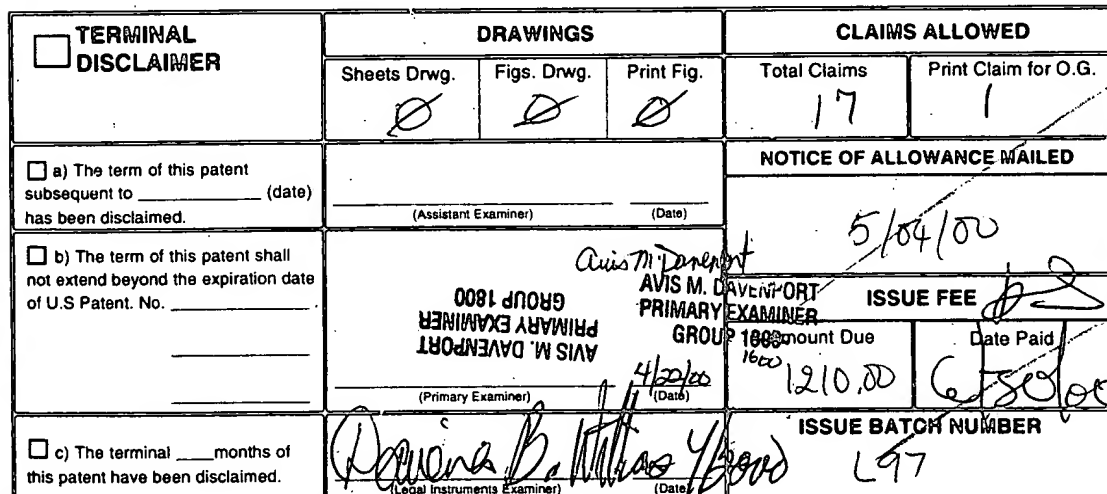 ☐ TERMINAL
DISCLAIMER
DRAWINGS
CLAIMS ALLOWED
Sheets Drwg.
Figs. Drwg.
Print Fig.
Total Claims
Print Claim for O.G.
Ø
Ø
Ø
17
1
☐ a) The term of this patent
subsequent to ____________ (date)
has been disclaimed.
(Assistant Examiner)
(Date)
NOTICE OF ALLOWANCE MAILED
5/04/00
☐ b) The term of this patent shall
not extend beyond the expiration date
of U.S Patent. No. ____________
Avis M Davenport
AVIS M. DAVENPORT
PRIMARY EXAMINER
GROUP 1800
1600
AVIS M. DAVENPORT
PRIMARY EXAMINER
GROUP 1800
4/20/00
(Primary Examiner)
(Date)
ISSUE FEE
Amount Due
Date Paid
1210.00
☐ c) The terminal ____months of
this patent have been disclaimed.
B.
(Legal Instruments Examiner)
(Date)
ISSUE BATCH NUMBER
L97